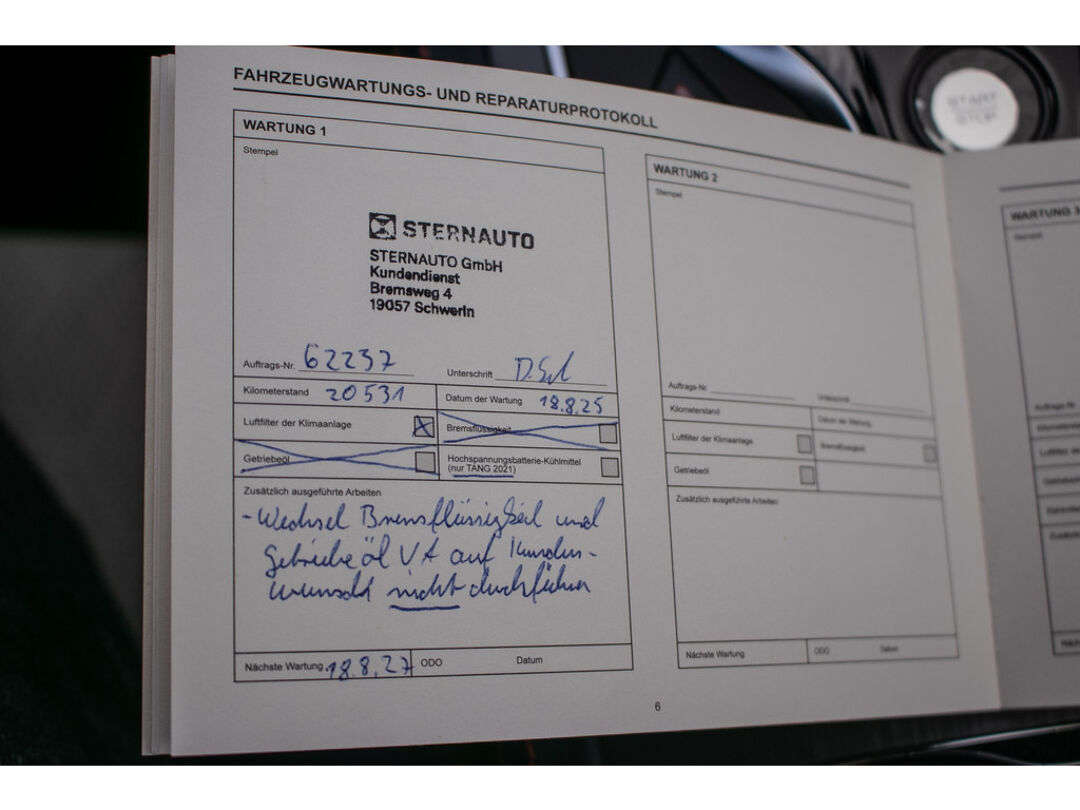 FAHRZEUGWARTUNGS- UND REPARATURPROTOKOLL
WARTUNG 1
Stempel
STERNAUTO
STERNAUTO GmbH
Kundendienst
Bremsweg 4
19057 Schwerin
Auftrags-Nr. 62237
Unterschrift
Kilometerstand 20531
Datum der Wartung 18.8.25
Luftfilter der Klimaanlage
Bremsflüssigkeit
Getriebeöl
Hochspannungsbatterie-Kühlmittel
(nur TANG 2021)
Zusätzlich ausgeführte Arbeiten
- Wechsel Bremsflüssigkeit und
Getriebeöl VA auf Kunden-
wunsch nicht durchführen
Nächste Wartung 18.8.27
ODO
Datum
WARTUNG 2
Stempel
Auftrags-Nr.
Unterschrift
Kilometerstand
Datum der Wartung
Luftfilter der Klimaanlage
Bremsflüssigkeit
Getriebeöl
Zusätzlich ausgeführte Arbeiten
Nächste Wartung
ODO
Datum
6
WARTUNG 3
Stempel
START
STOP